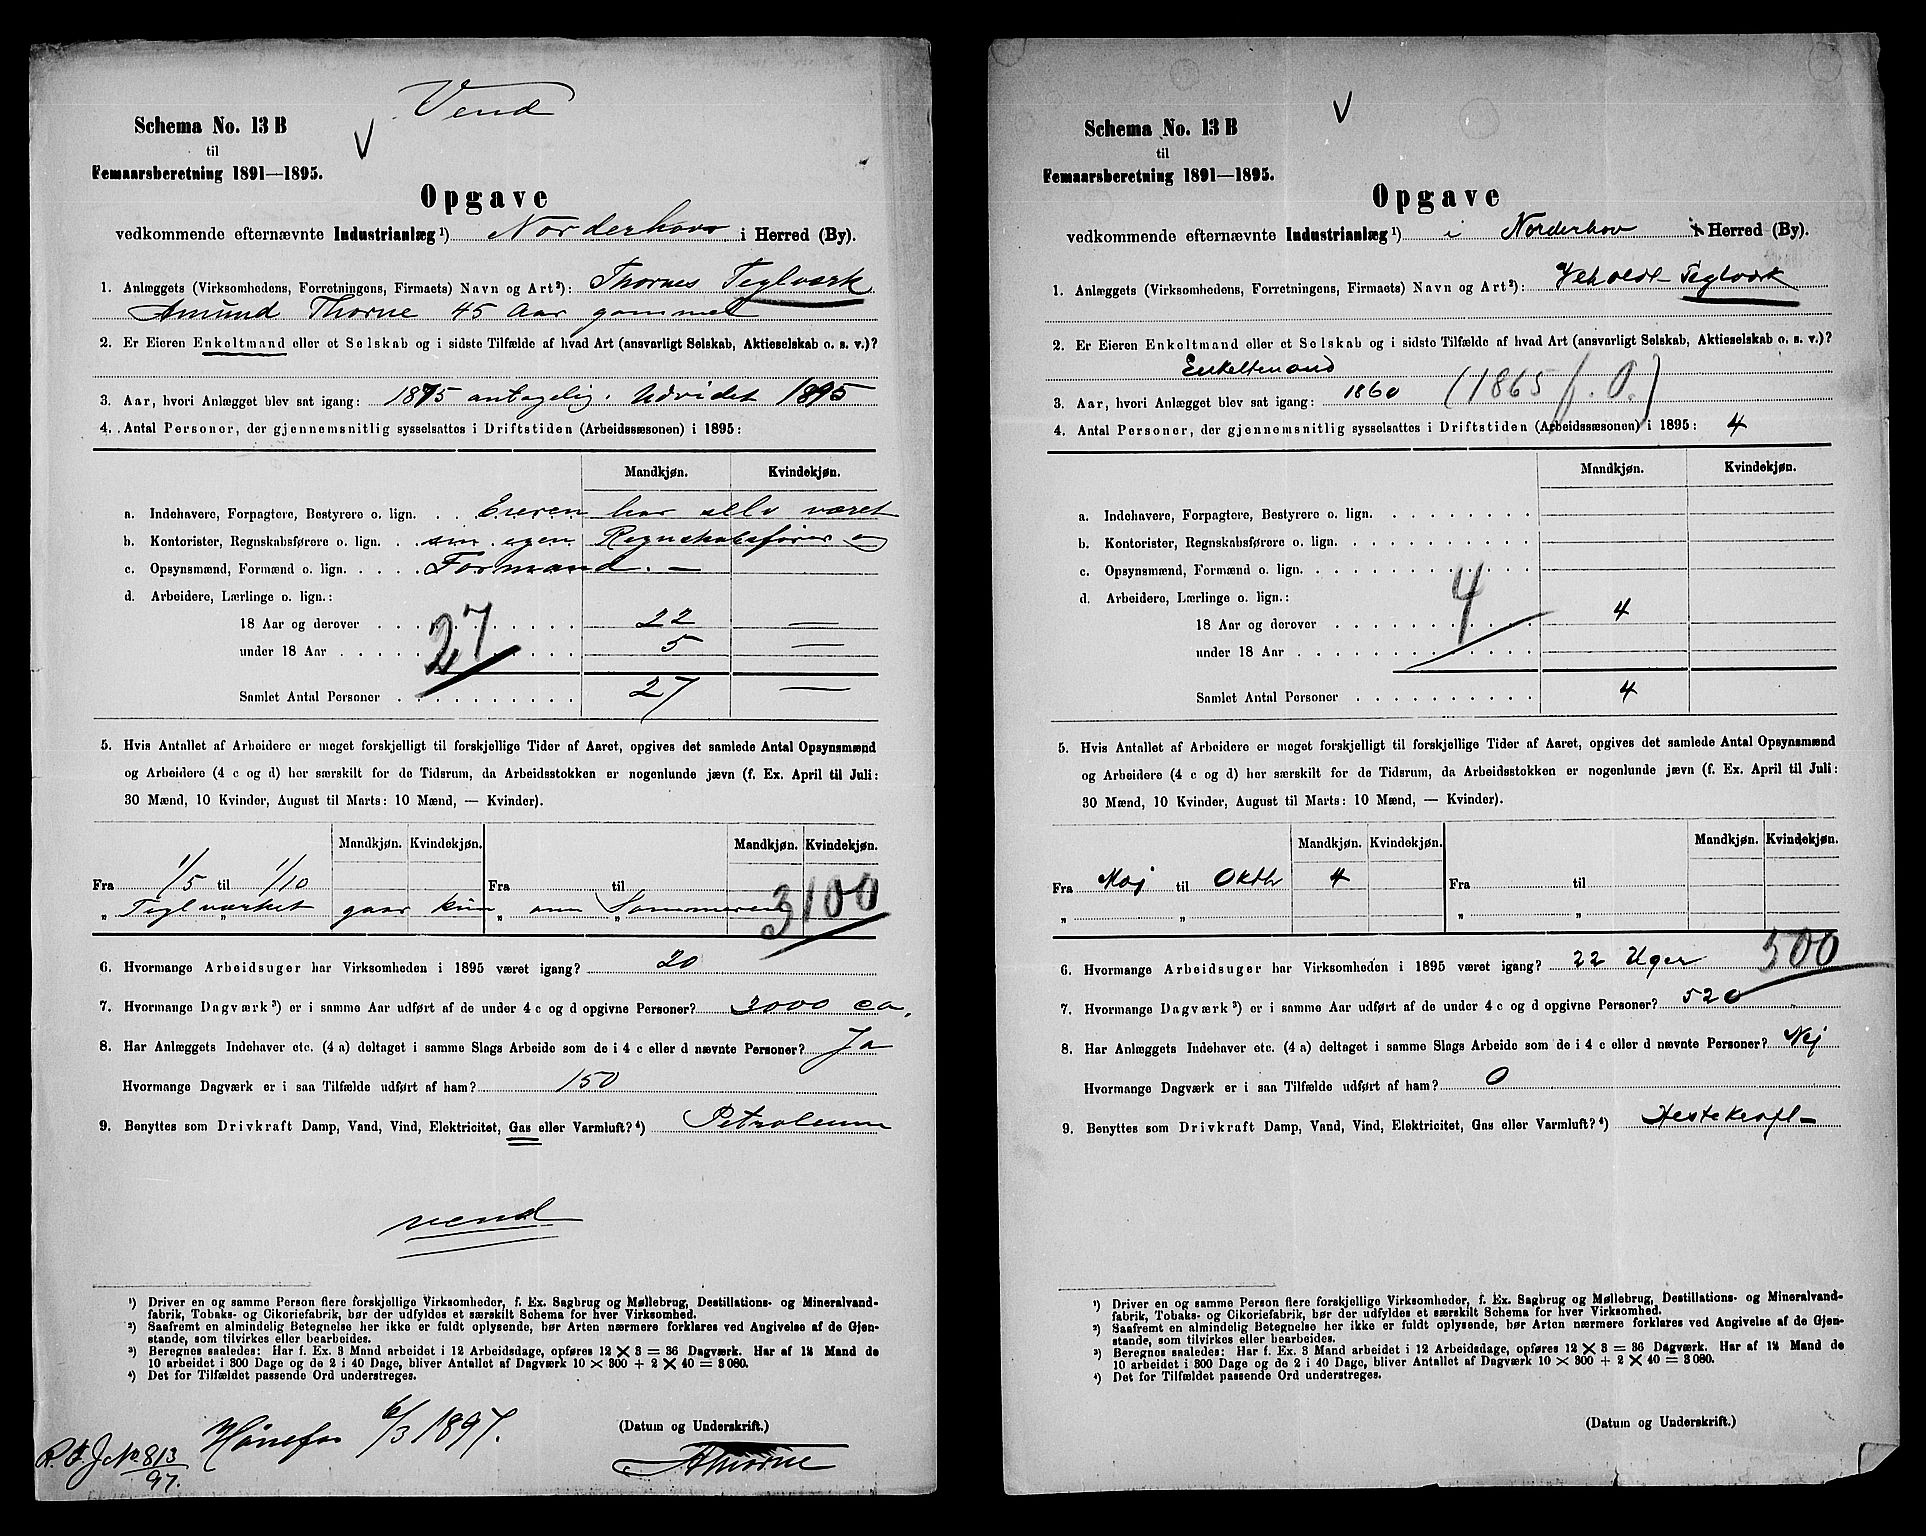 Vend
Schema No. 13 B
V
til
Femaarsberetning 1891—1895.
Opgave
vedkommende efternævnte Industrianlæg ¹) Norderhovs i Herred (By).
1. Anlæggets (Virksomhedens, Forretningens, Firmaets) Navn og Art²): Thornes Teglværk
Amund Thorne 45 Aar gammel
2. Er Eieren Enkeltmand eller et Selskab og i sidste Tilfælde af hvad Art (ansvarligt Selskab, Aktieselskab o. s. v.)?
3. Aar, hvori Anlægget blev sat igang: 1875 antagelig. Udvidet 1895
4. Antal Personer, der gjennemsnitlig sysselsattes i Driftstiden (Arbeidssæsonen) i 1895:
Mandkjøn. Kvindekjøn.
a. Indehavere, Forpagtere, Bestyrere o. lign. Eieren har selv været
b. Kontorister, Regnskabsførere o. lign. sin egen Regnskabsfører og
c. Opsynsmænd, Formænd o. lign. Formand. —
d. Arbeidere, Lærlinge o. lign.:
18 Aar og derover 22 —
27
under 18 Aar 5 —
Samlet Antal Personer 27 —
5. Hvis Antallet af Arbeidere er meget forskjelligt til forskjellige Tider af Aaret, opgives det samlede Antal Opsynsmænd
og Arbeidere (4 c og d) her særskilt for de Tidsrum, da Arbeidsstokken er nogenlunde jævn (f. Ex. April til Juli:
30 Mænd, 10 Kvinder, August til Marts: 10 Mænd, — Kvinder).
Mandkjøn. Kvindekjøn. Mandkjøn. Kvindekjøn.
Fra 1/5 til 1/10 Fra til
„ Teglværket „ gaar kun „ om „ Sommeren 3100
6. Hvormange Arbeidsuger har Virksomheden i 1895 været igang? 20
7. Hvormange Dagværk³) er i samme Aar udført af de under 4 c og d opgivne Personer? 3000 ca.
8. Har Anlæggets Indehaver etc. (4 a) deltaget i samme Slags Arbeide som de i 4 c eller d nævnte Personer? Ja
Hvormange Dagværk er i saa Tilfælde udført af ham? 150
9. Benyttes som Drivkraft Damp, Vand, Vind, Elektricitet, Gas eller Varmluft?⁴) Petroleum
vend
¹) Driver en og samme Person flere forskjellige Virksomheder, f. Ex. Sagbrug og Møllebrug, Destillations- og Mineralvand-
fabrik, Tobaks- og Cikoriefabrik, bør der udfyldes et særskilt Schema for hver Virksomhed.
²) Saafremt en almindelig Betegnelse her ikke er fuldt oplysende, bør Arten nærmere forklares ved Angivelse af de Gjen-
stande, som tilvirkes eller bearbeides.
³) Beregnes saaledes: Har f. Ex. 3 Mand arbeidet i 12 Arbeidsdage, opføres 12 × 3 = 36 Dagværk. Har af 12 Mand de
10 arbeidet i 300 Dage og de 2 i 40 Dage, bliver Antallet af Dagværk 10 × 300 + 2 × 40 = 3 080.
⁴) Det for Tilfældet passende Ord understreges.
Hønefos 6/3 1897.
(Datum og Underskrift.)
AThorne
R. F. J No 813
97.
V
Schema No. 13 B
til
Femaarsberetning 1891—1895.
Opgave
vedkommende efternævnte Industrianlæg ¹) i Norderhov i Herred (By).
1. Anlæggets (Virksomhedens, Forretningens, Firmaets) Navn og Art²): Teglværk
2. Er Eieren Enkeltmand eller et Selskab og i sidste Tilfælde af hvad Art (ansvarligt Selskab, Aktieselskab o. s. v.)?
Enkeltmand
3. Aar, hvori Anlægget blev sat igang: 1860 (1865 f. O.)
4. Antal Personer, der gjennemsnitlig sysselsattes i Driftstiden (Arbeidssæsonen) i 1895: 4
Mandkjøn. Kvindekjøn.
a. Indehavere, Forpagtere, Bestyrere o. lign.
b. Kontorister, Regnskabsførere o. lign.
c. Opsynsmænd, Formænd o. lign.
d. Arbeidere, Lærlinge o. lign.:
4
18 Aar og derover 4
under 18 Aar
Samlet Antal Personer 4
5. Hvis Antallet af Arbeidere er meget forskjelligt til forskjellige Tider af Aaret, opgives det samlede Antal Opsynsmænd
og Arbeidere (4 c og d) her særskilt for de Tidsrum, da Arbeidsstokken er nogenlunde jævn (f. Ex. April til Juli:
30 Mænd, 10 Kvinder, August til Marts: 10 Mænd, — Kvinder).
Mandkjøn. Kvindekjøn. Mandkjøn. Kvindekjøn.
Fra Maj til Oktbr 4 Fra til
„ „ „ „
6. Hvormange Arbeidsuger har Virksomheden i 1895 været igang? 22 Uger 500
7. Hvormange Dagværk³) er i samme Aar udført af de under 4 c og d opgivne Personer? 520
8. Har Anlæggets Indehaver etc. (4 a) deltaget i samme Slags Arbeide som de i 4 c eller d nævnte Personer? Nej
Hvormange Dagværk er i saa Tilfælde udført af ham? 0
9. Benyttes som Drivkraft Damp, Vand, Vind, Elektricitet, Gas eller Varmluft?⁴) Hestekraft
¹) Driver en og samme Person flere forskjellige Virksomheder, f. Ex. Sagbrug og Møllebrug, Destillations- og Mineralvand-
fabrik, Tobaks- og Cikoriefabrik, bør der udfyldes et særskilt Schema for hver Virksomhed.
²) Saafremt en almindelig Betegnelse her ikke er fuldt oplysende, bør Arten nærmere forklares ved Angivelse af de Gjen-
stande, som tilvirkes eller bearbeides.
³) Beregnes saaledes: Har f. Ex. 3 Mand arbeidet i 12 Arbeidsdage, opføres 12 × 3 = 36 Dagværk. Har af 12 Mand de
10 arbeidet i 300 Dage og de 2 i 40 Dage, bliver Antallet af Dagværk 10 × 300 + 2 × 40 = 3 080.
⁴) Det for Tilfældet passende Ord understreges.
(Datum og Underskrift.)